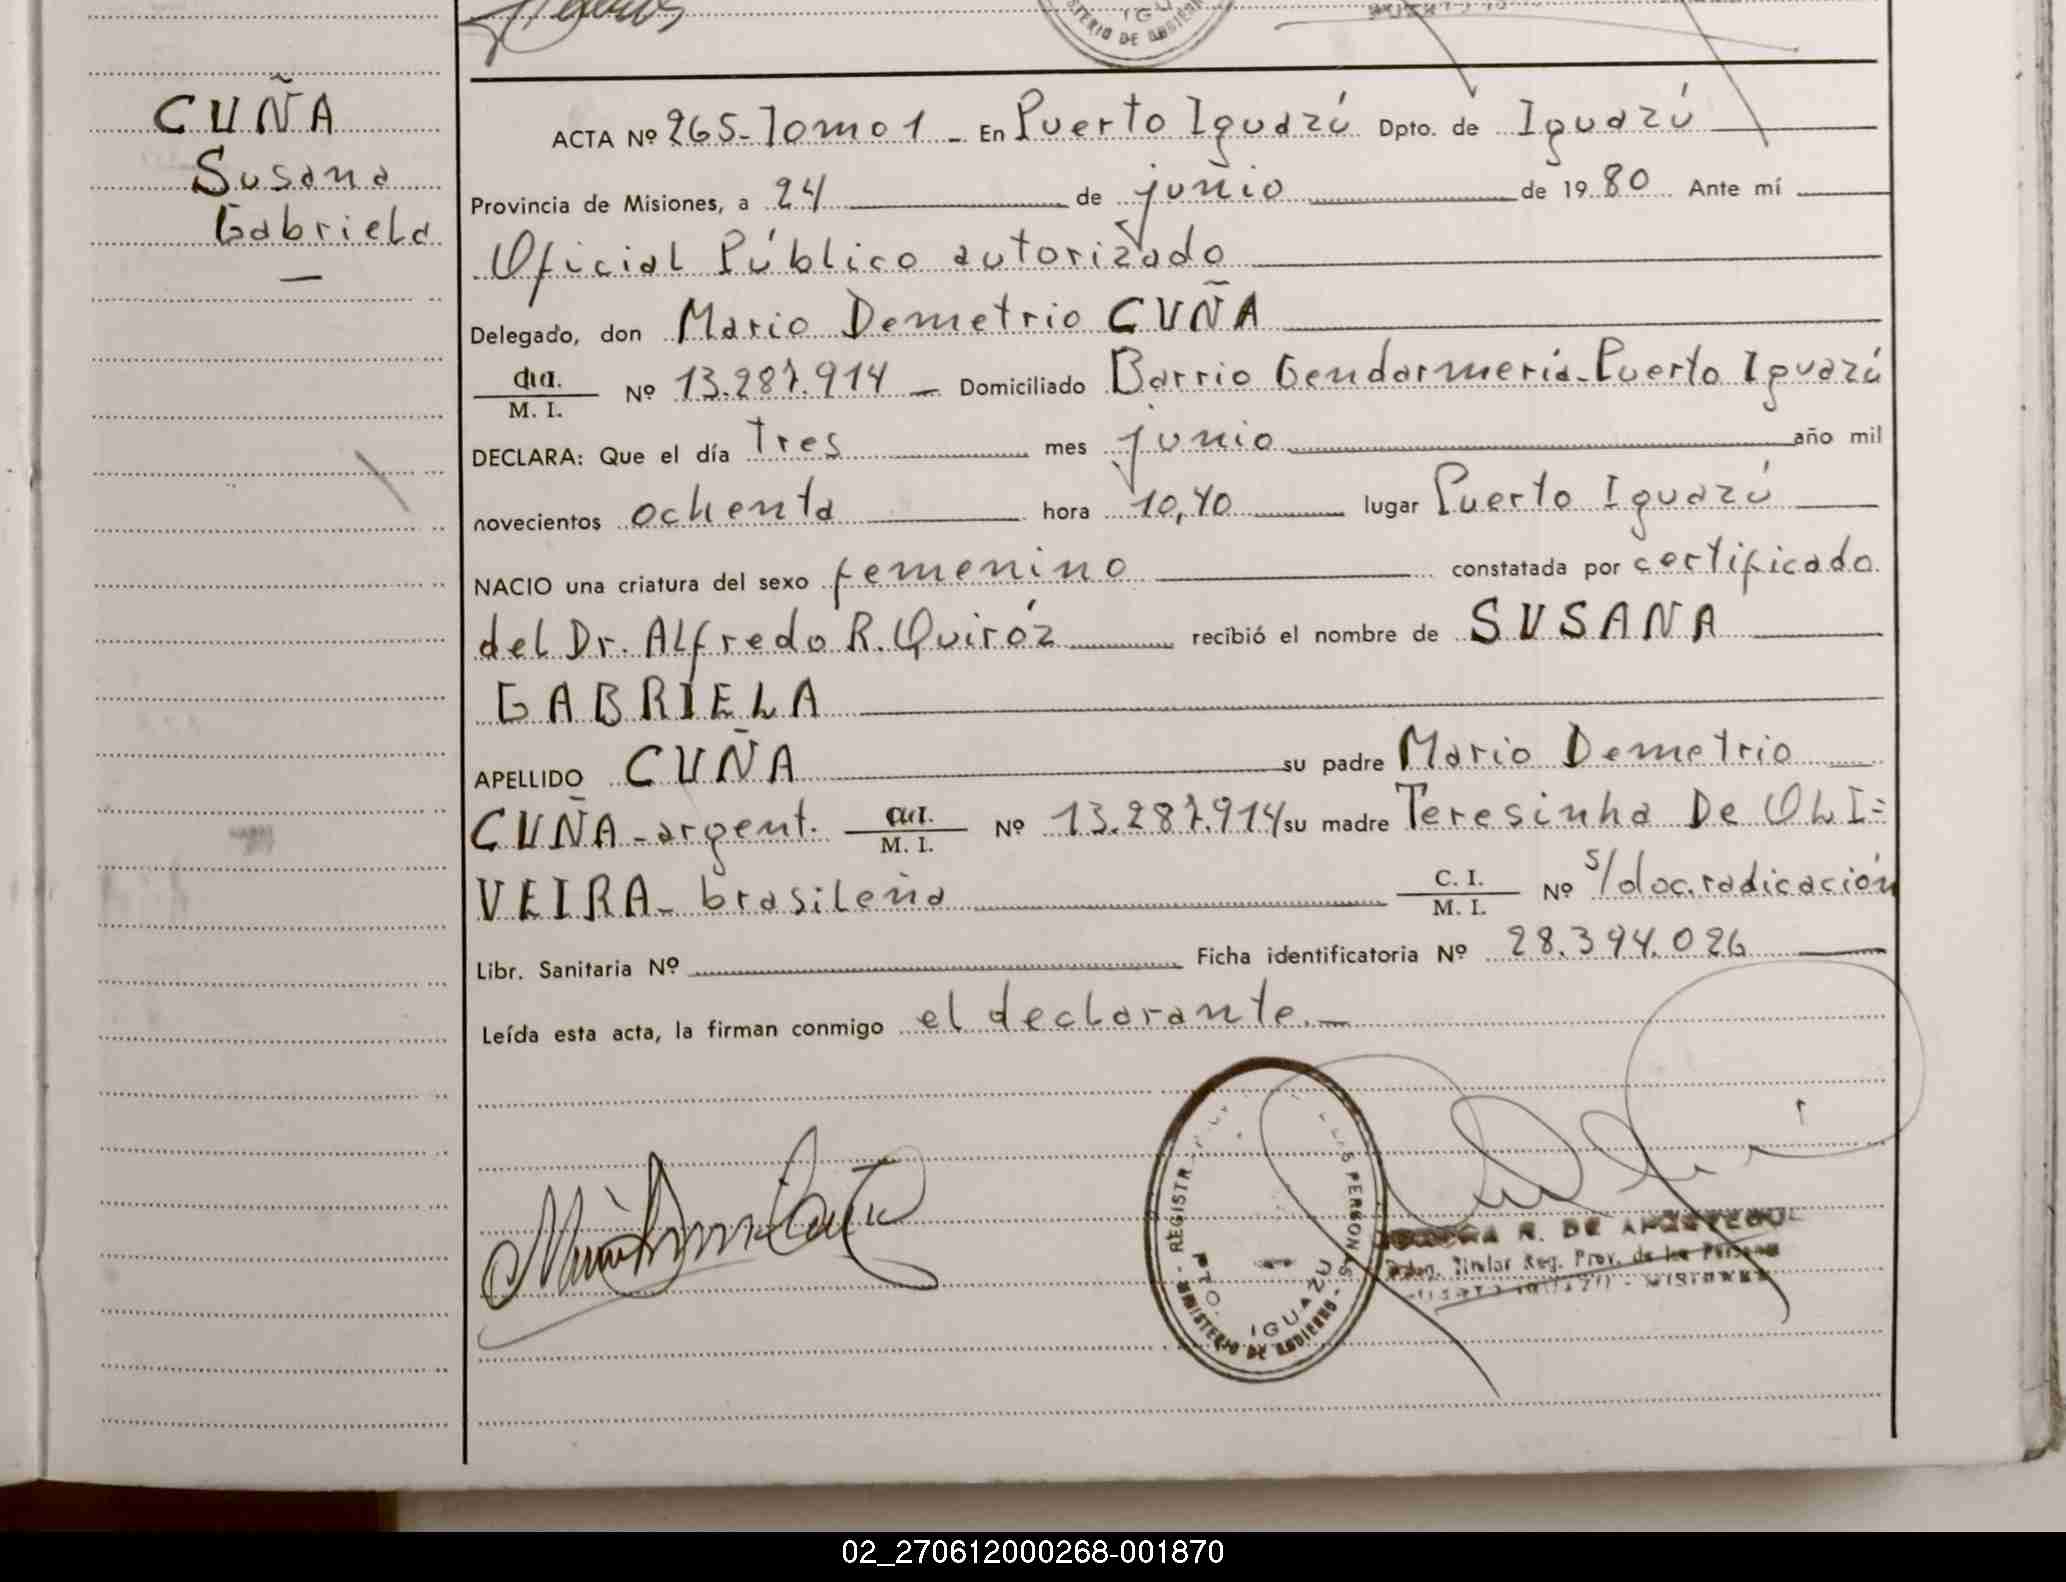 CUÑA
Susana
Gabriela
—
ACTA Nº 265-Tomo 1 - En Puerto Iguazú Dpto. de Iguazú
Provincia de Misiones, a 24 de junio de 1980 Ante mí
Oficial Público autorizado
Delegado, don Mario Demetrio CUÑA
M. I. Nº 13.287.914 - Domiciliado Barrio Gendarmería-Puerto Iguazú
DECLARA: Que el día Tres mes junio año mil
novecientos ochenta hora 10,40 lugar Puerto Iguazú
NACIO una criatura del sexo femenino constatada por certificado
del Dr. Alfredo R. Quiróz recibió el nombre de SUSANA
GABRIELA
APELLIDO CUÑA su padre Mario Demetrio
CUÑA-argent. M. I. Nº 13.287.914 su madre Teresinha De OLI=
VEIRA- brasileña C. I. M. I. Nº s/doc.radicación
Libr. Sanitaria Nº Ficha identificatoria Nº 28.394.026
Leída esta acta, la firman conmigo el declarante.-
REGISTR PERSONAS
PTO. IGUAZU
MINISTERIO DE GOBIERNO
R. DE
Titular Reg. Prov. de las Personas
MISIONES
02_270612000268-001870